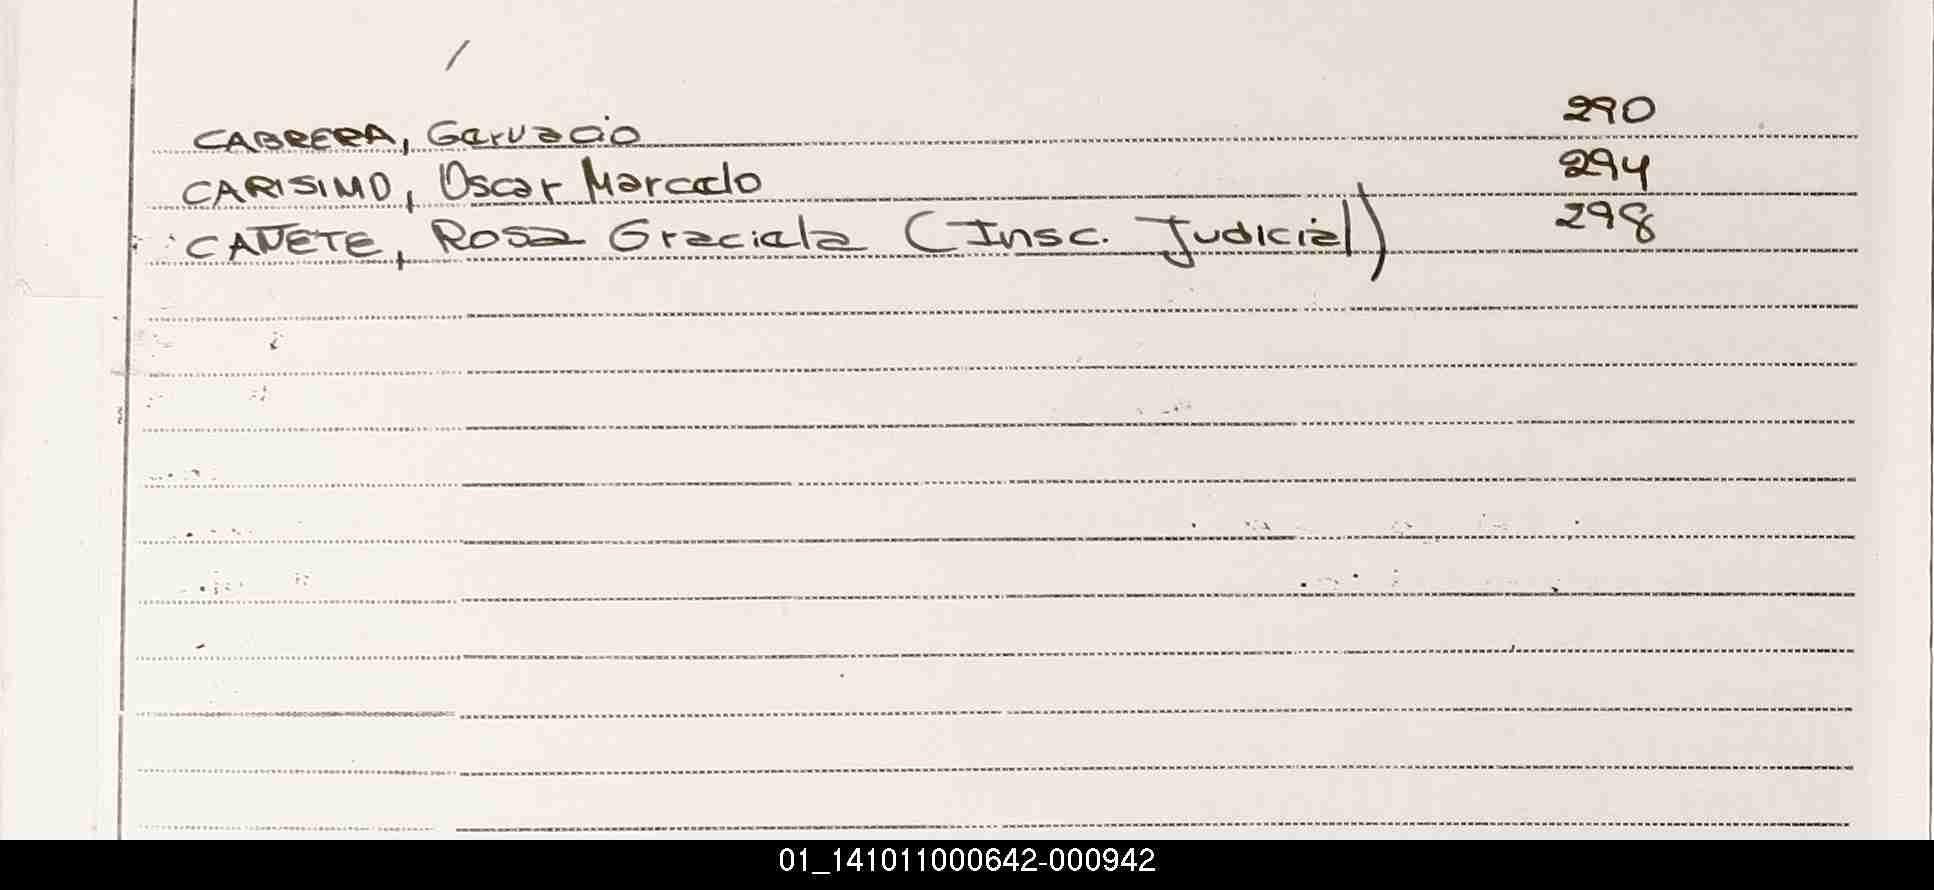 CABRERA, Gervacio 290
CARISIMO, Oscar Marcelo 294
CAÑETE, Rosa Graciela (Insc. Judicial) 298
01_141011000642-000942